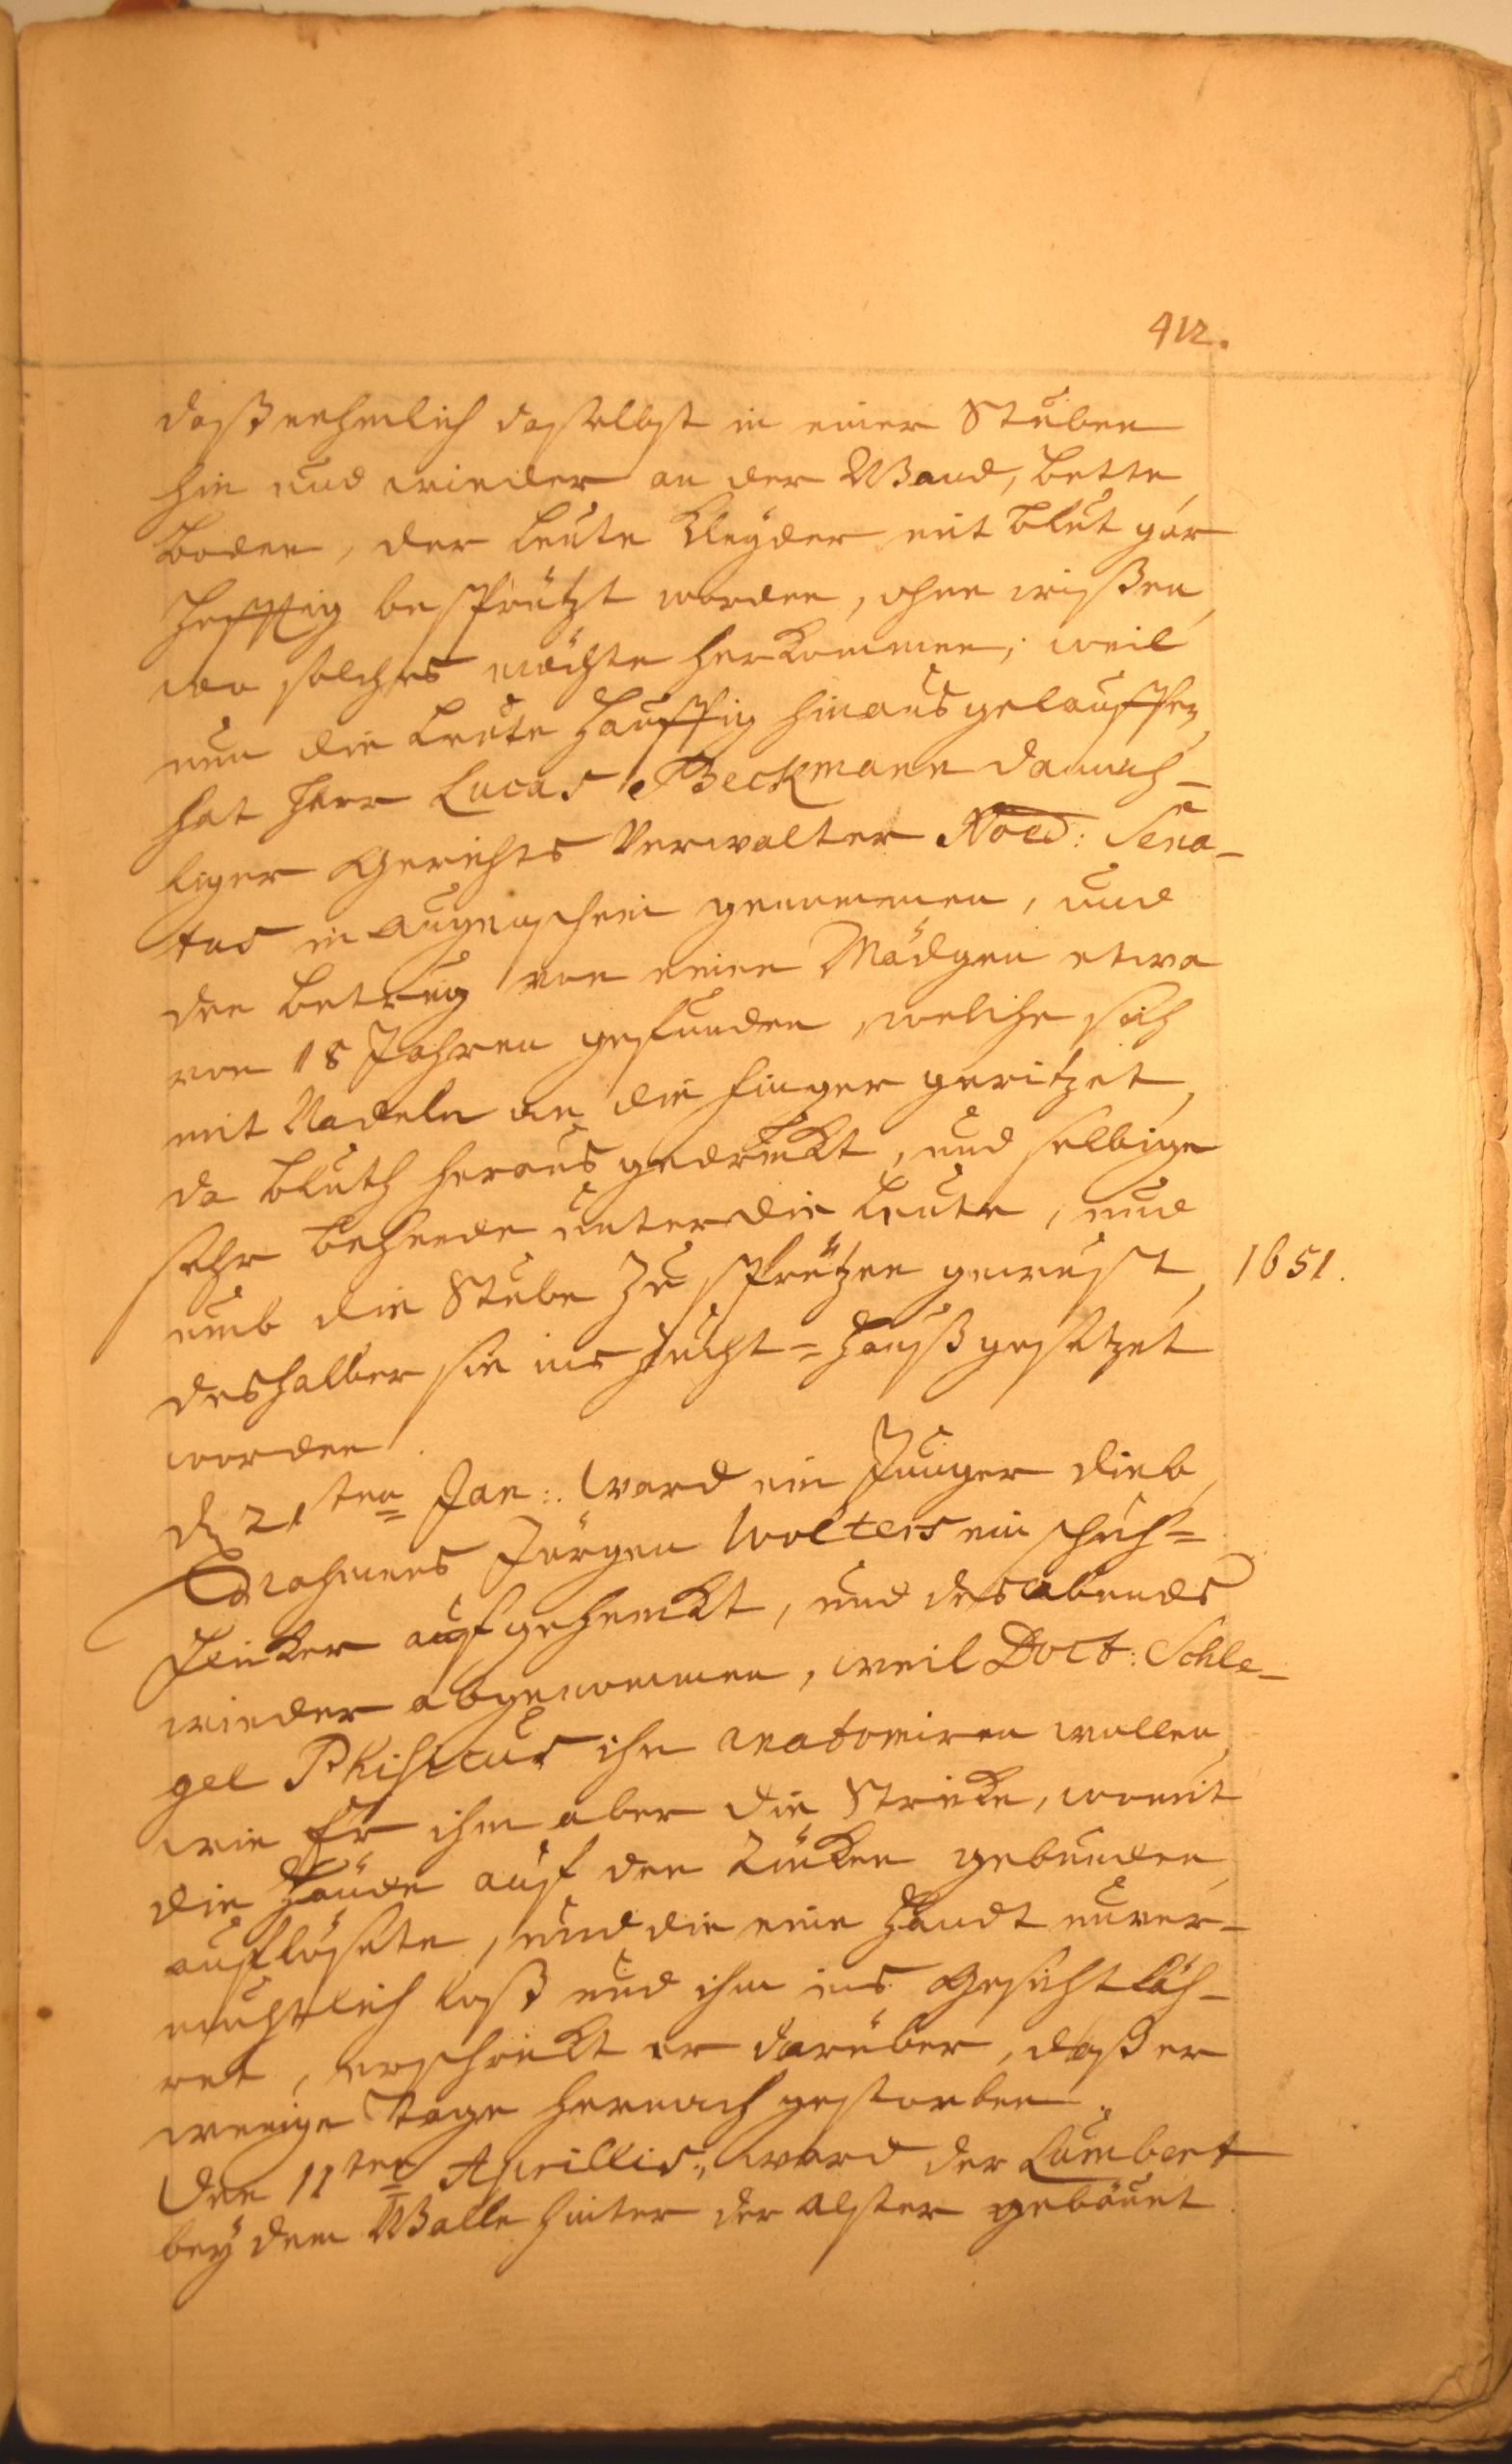 412.
daß nehmlich daselbst in einer Stuben
hin und wieder an der Wand, Bette,
Boden, der Leute Kleyder mit Blut gar
hefftig besprützt worden, ohne wißen,
wo solches möchte herkommen; weil
nun die Leute Hauffig hinausgelauffen,
hat Herr Lucas Beckmann damah-
liger Gerichts Verwalter Noē: Sena-
tus in augenschein genommen, und
den Betrug von einen Mädgen etwa
von 18 Jahren gefunden, welche sich
mit Nadeln an die Finger geritzet,
da Bluth heraus gedrückt, und selbige
sehr behende unter die Leute, und
umb die Stube zu sprützen gewust,
1651.
deshalber sie ins Zucht=Hauß gesetzet
worden.
d 21ten Jan: Ward ein Junger dieb,
Nahmens Jürgen Wolters ein schuh=
flicker aufgehenckt, und des abends
wieder abgenommen, weil Doct: Schle-
gel Phisicus ihn anatomiren wollen,
wie Er ihm aber die Stricke, womit
die Hände auf den Rücken gebunden,
auflösete, und die eine Handt unver-
muhtlich loß und ihm ins Gesicht fäh-
ret, erschrickt er darüber, daß er
wenige Tage hernach gestorben.
Den 11ten Aprillis, ward der Lumbert
bey dem Walle hinter der Alster gebauet.